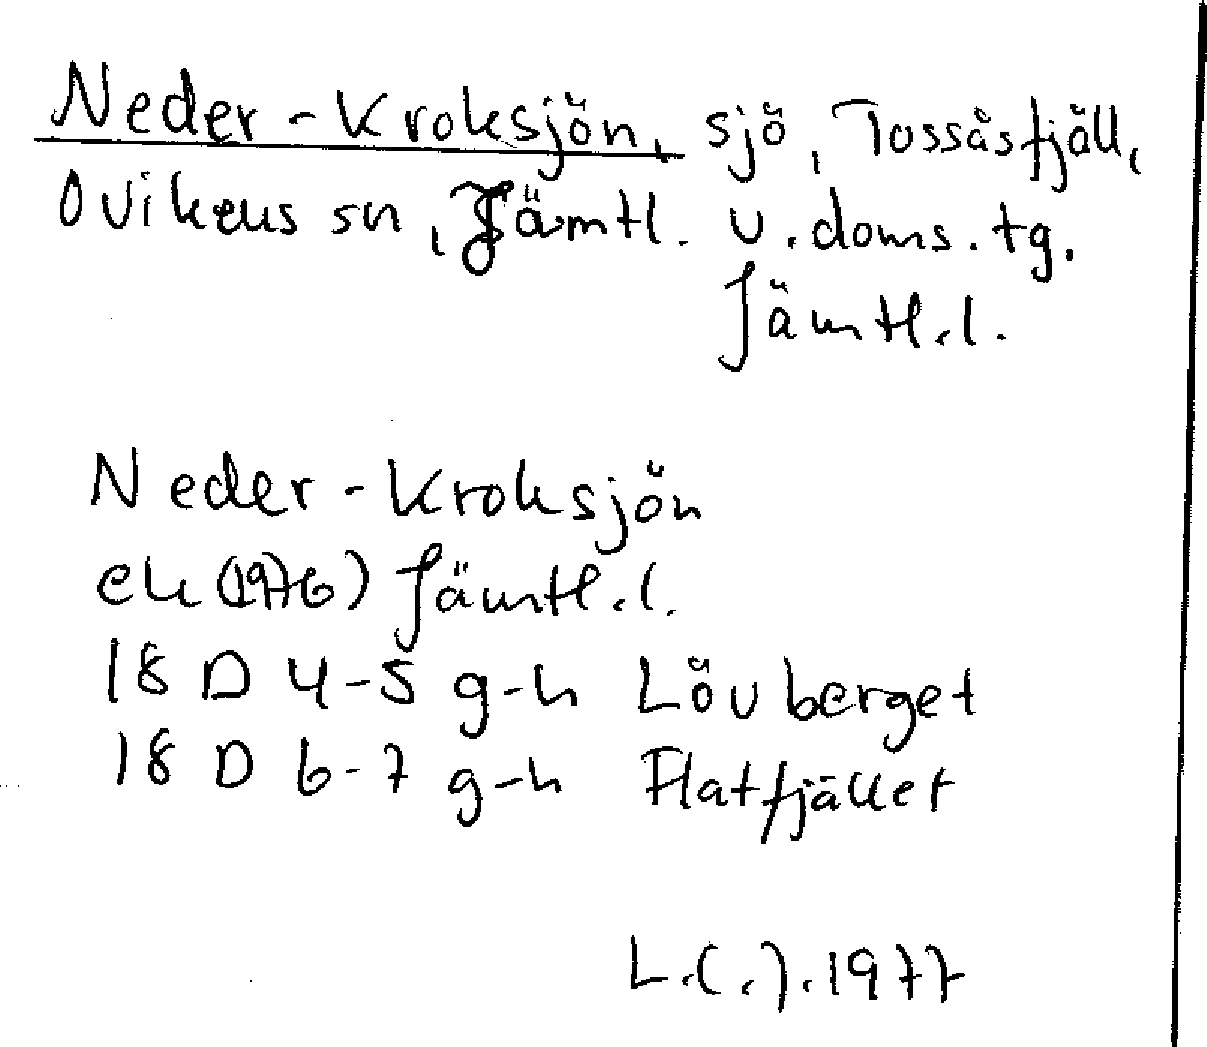 Neder-Kroksjön, sjö, Tossåsfjäll,
Ovikens sn, Jämtl. v. doms. tg.
Jämtl.l.
Neder-Kroksjön
ek (1976) Jämtl.l.
18 D 4-5 g-h Lövberget
18 D 6-7 g-h Flatfjället
L.C.J. 1977